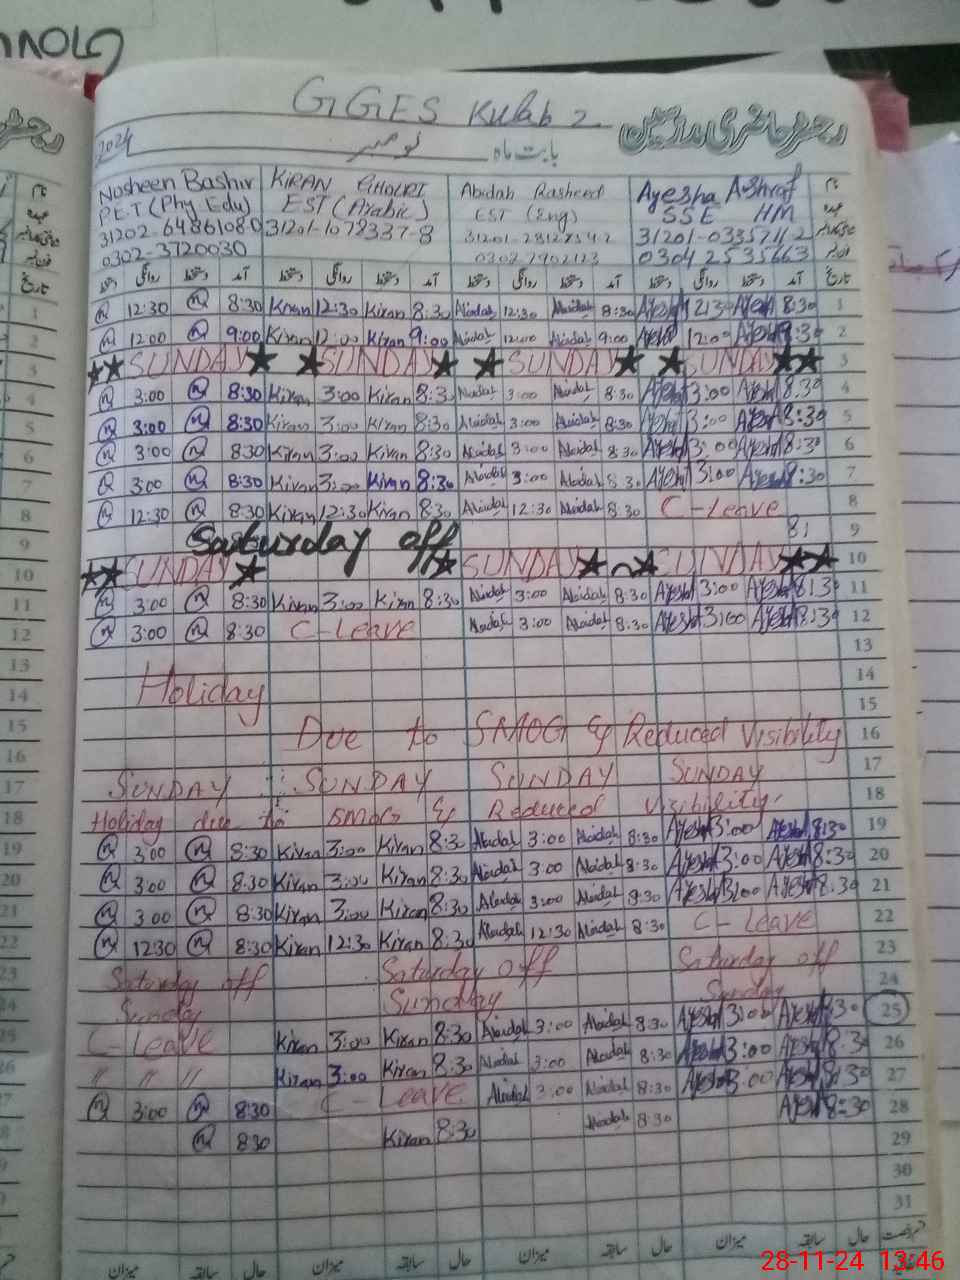 GGES Kulab 2
رجسٹر حاضری مدرسین
2024 نومبر بابت ماہ
Nosheen Bashir KIRAN GHOURI Abidah Rasheed Ayesha Ashraf نام
PET (Phy Edu) EST (Arabic) EST (Eng) SSE HM عہدہ
31202-6486108-0 31201-1078337-8
0302-3720030 0304 2535663
دستخط روانگی دستخط آمد دستخط روانگی دستخط آمد دستخط روانگی دستخط آمد دستخط روانگی دستخط آمد تاریخ
12:30 8:30 Kiran 12:30 Kiran 8:30 Abidah 12:30 Abidah 8:30 Ayesha 12:30 Ayesha 8:30 1
12:00 9:00 Kiran 12:00 Kiran 9:00 Abidah 12:00 Abidah 9:00 Ayesha 12:00 Ayesha 8:30 2
SUNDAY SUNDAY SUNDAY SUNDAY 3
3:00 8:30 Kiran 3:00 Kiran 8:30 Abidah 3:00 Abidah 8:30 Ayesha 3:00 Ayesha 8:30 4
3:00 8:30 Kiran 3:00 Kiran 8:30 Abidah 3:00 Abidah 8:30 Ayesha 3:00 Ayesha 8:30 5
3:00 8:30 Kiran 3:00 Kiran 8:30 Abidah 3:00 Abidah 8:30 Ayesha 3:00 Ayesha 8:30 6
3:00 8:30 Kiran 3:00 Kiran 8:30 Abidah 3:00 Abidah 8:30 Ayesha 3:00 Ayesha 8:30 7
12:30 8:30 Kiran 12:30 Kiran 8:30 Abidah 12:30 Abidah 8:30 C-Leave 8
Saturday off 9
SUNDAY SUNDAY SUNDAY 10
3:00 8:30 Kiran 3:00 Kiran 8:30 Abidah 3:00 Abidah 8:30 Ayesha 3:00 Ayesha 8:30 11
3:00 8:30 C-Leave Abidah 3:00 Abidah 8:30 Ayesha 3:00 Ayesha 8:30 12
13
Holiday 14
15
Due to SMOG & Reduced Visibility 16
SUNDAY SUNDAY SUNDAY SUNDAY 17
Holiday due to SMOG & Reduced Visibility. 18
3:00 8:30 Kiran 3:00 Kiran 8:30 Abidah 3:00 Abidah 8:30 Ayesha 3:00 Ayesha 8:30 19
3:00 8:30 Kiran 3:00 Kiran 8:30 Abidah 3:00 Abidah 8:30 Ayesha 3:00 Ayesha 8:30 20
3:00 8:30 Kiran 3:00 Kiran 8:30 Abidah 3:00 Abidah 8:30 Ayesha 3:00 Ayesha 8:30 21
12:30 8:30 Kiran 12:30 Kiran 8:30 Abidah 12:30 Abidah 8:30 C-Leave 22
Saturday off Saturday off Saturday off 23
Sunday Sunday Sunday 24
C-Leave Kiran 3:00 Kiran 8:30 Abidah 3:00 Abidah 8:30 Ayesha 3:00 Ayesha 8:30 25
// // // Kiran 3:00 Kiran 8:30 Abidah 3:00 Abidah 8:30 Ayesha 3:00 Ayesha 8:30 26
3:00 8:30 C-Leave Abidah 3:00 Abidah 8:30 Ayesha 3:00 Ayesha 8:30 27
8:30 Kiran 8:30 Abidah 8:30 Ayesha 8:30 28
29
30
31
میزان سابقہ حال میزان سابقہ حال میزان سابقہ حال میزان سابقہ حال
28-11-24 13:46